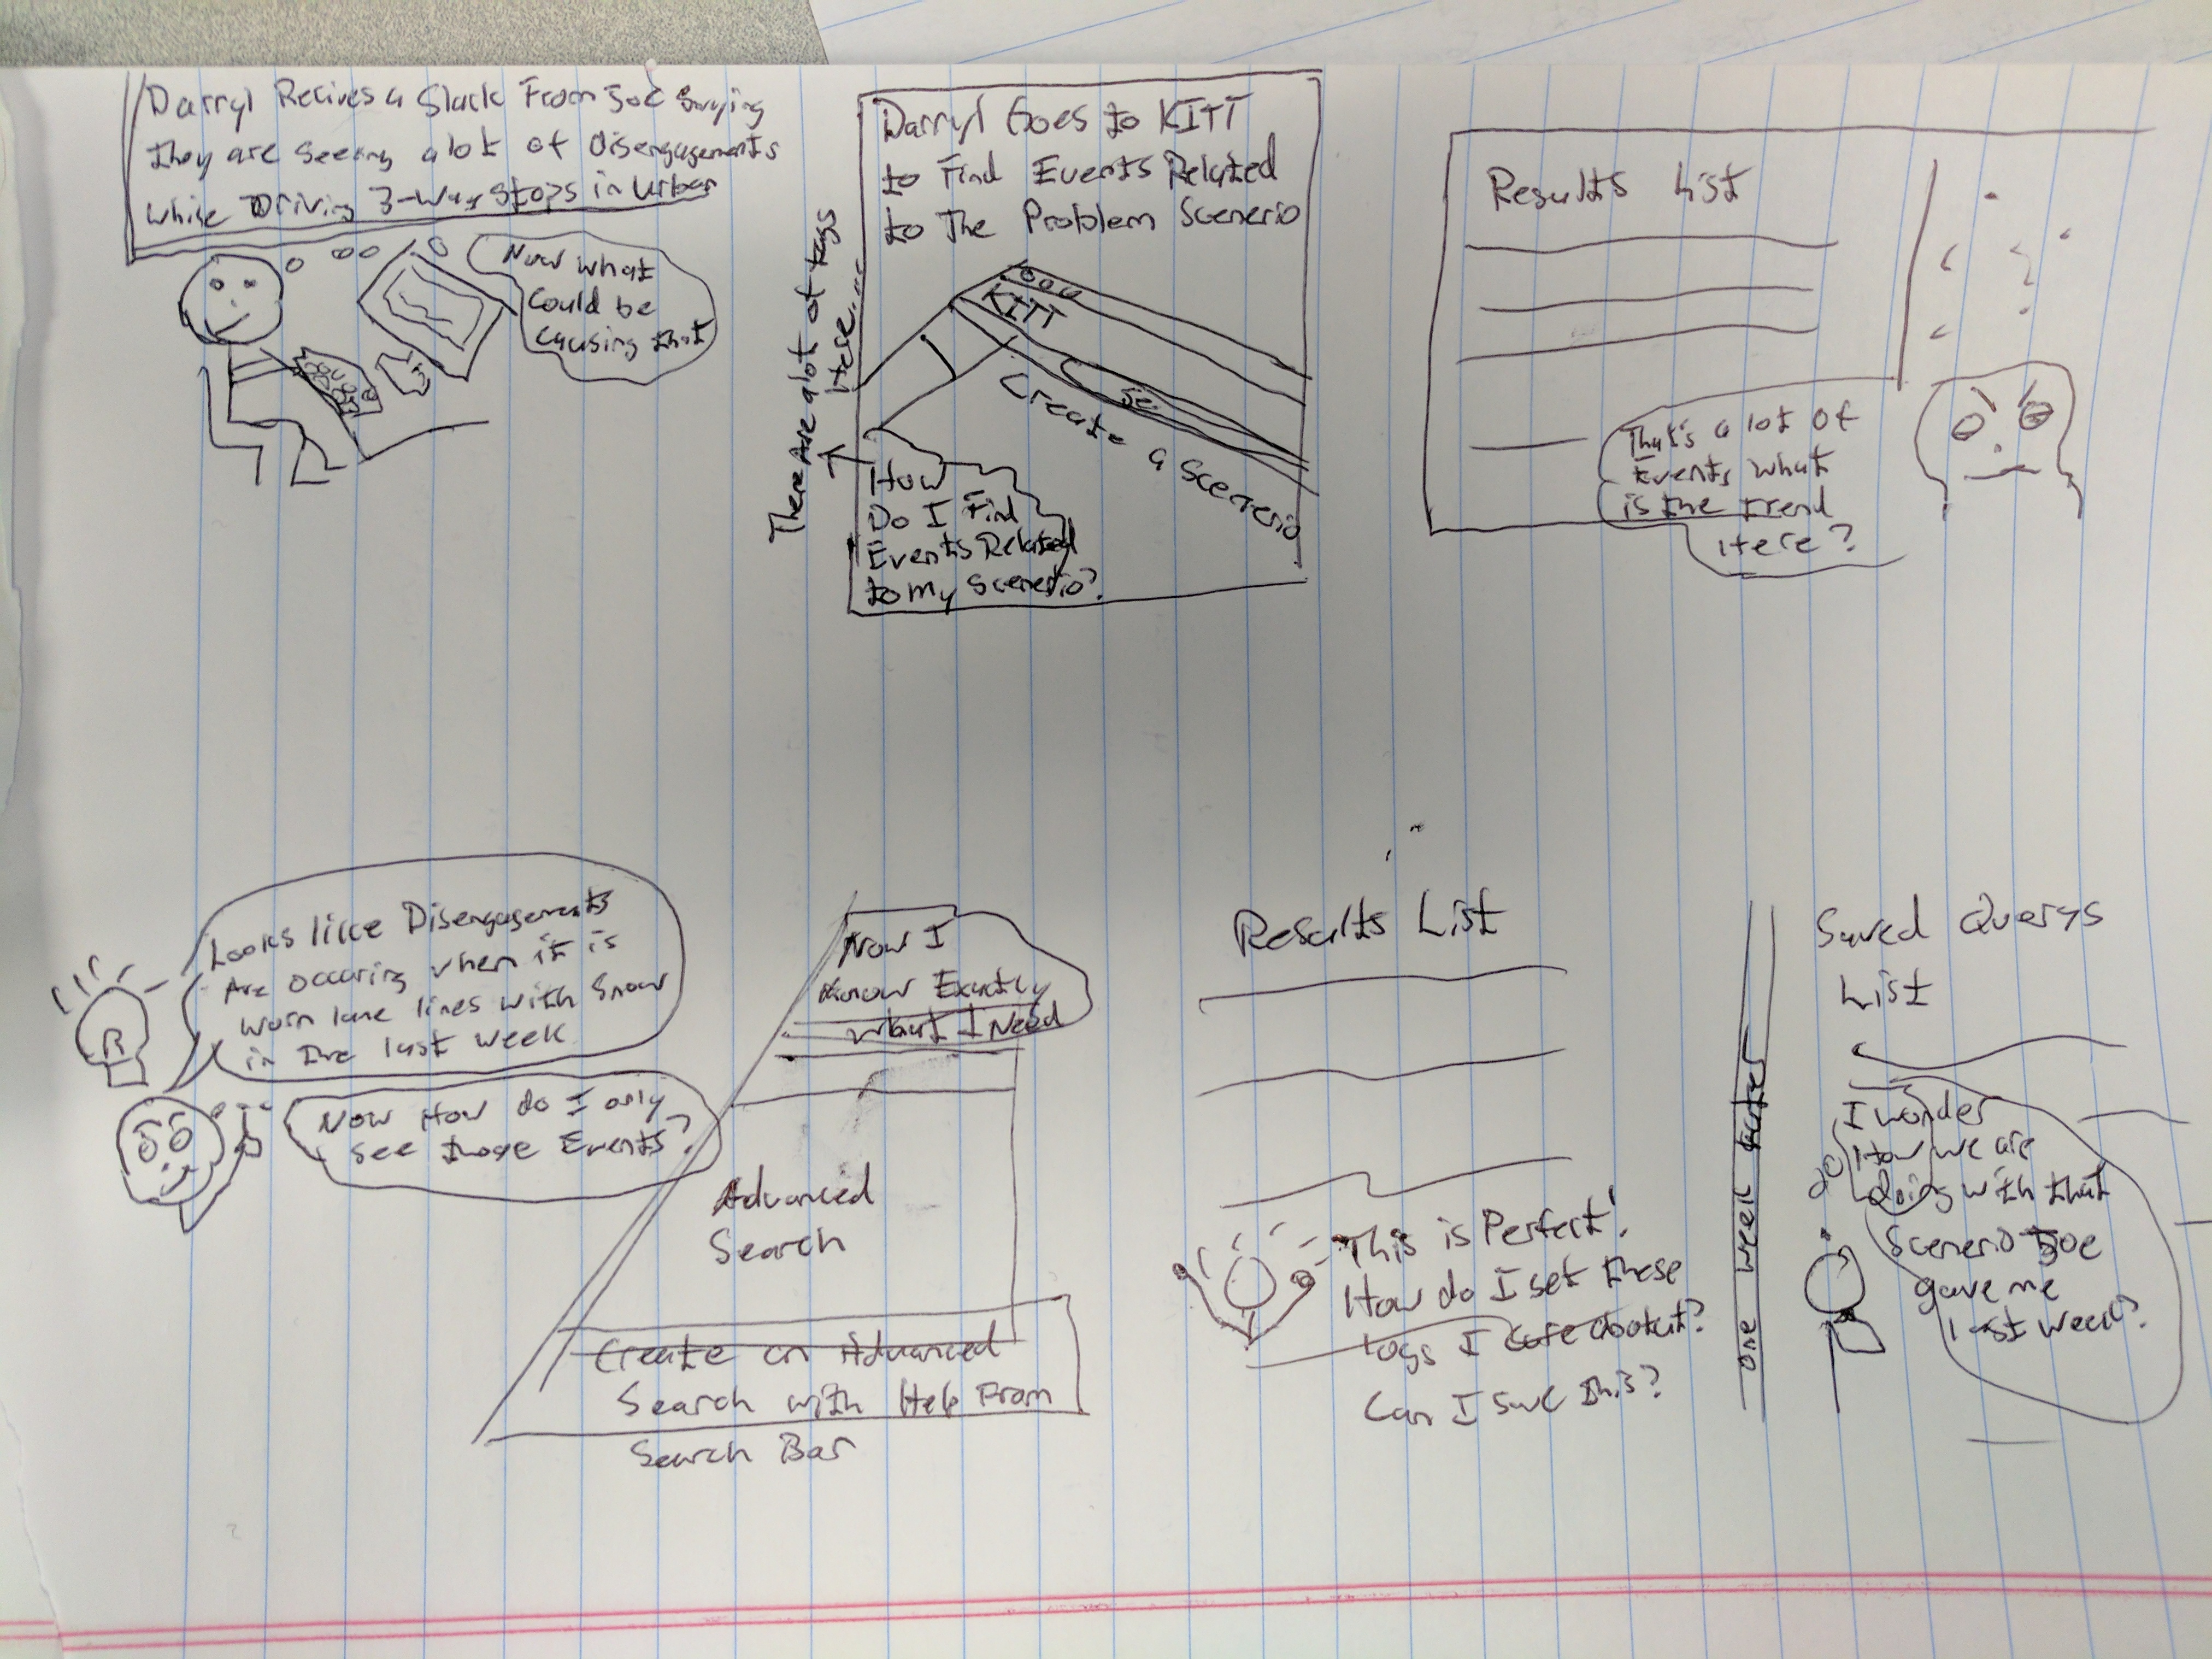 Darryl Recives a Slack From Joe Saying
they are seeing a lot of Disengagements
while Driving 3-Way Stops in Urban
Now what
could be
causing that
There Are a lot of tags
Here....
Darryl Goes to KITT
to Find Events Related
to The Problem Scenerio
KITT
Create a Scenerio
How
Do I Find
Events Related
to my Scenerio?
Results List
That's a lot of
Events what
is the trend
Here?
Looks like Disengagements
Are occuring when it is
worn lane lines with Snow
in the last week
Now How do I only
see those Events?
Now I
know Exactly
what I Need
Advanced
Search
Create an Advanced
Search with Help From
Search Bar
Results List
This is Perfect!
How do I set these
tags I care about?
Can I save this?
one week later
Saved Querys
List
I wonder
How we are
doing with that
Scenerio Joe
gave me
last week?